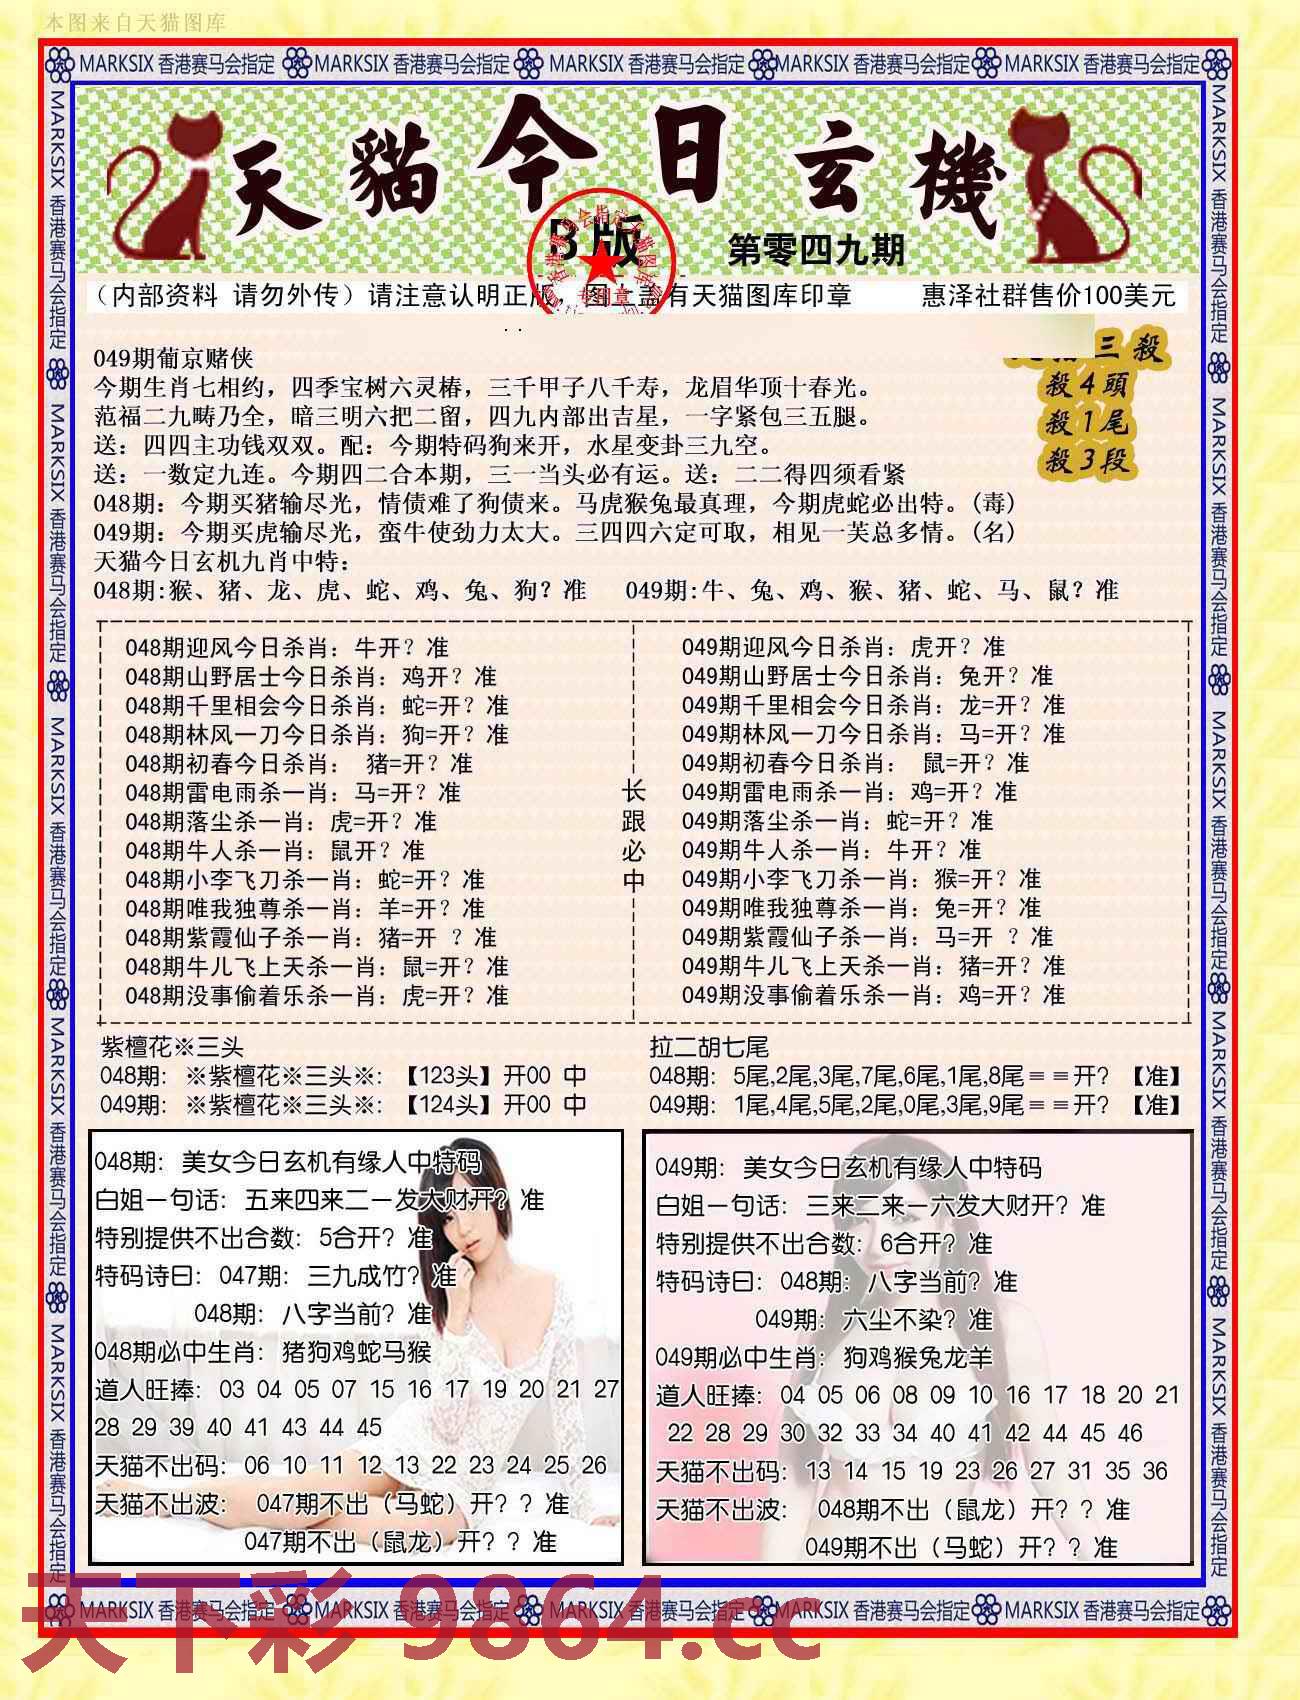 本图来自天猫图库
MARKSIX 香港赛马会指定 MARKSIX 香港赛马会指定 MARKSIX 香港赛马会指定 MARKSIX 香港赛马会指定 MARKSIX 香港赛马会指定
天貓今日玄機
B版
第零四九期
专用章
(内部资料 请勿外传) 请注意认明正版，图上盖有天猫图库印章 惠泽社群售价100美元
三殺
殺4頭
殺1尾
殺3段
049期葡京赌侠
今期生肖七相约，四季宝树六灵椿，三千甲子八千寿，龙眉华顶十春光。
范福二九畴乃全，暗三明六把二留，四九内部出吉星，一字紧包三五腿。
送：四四主功钱双双。配：今期特码狗来开，水星变卦三九空。
送：一数定九连。今期四二合本期，三一当头必有运。送：二二得四须看紧
048期：今期买猪输尽光，情债难了狗债来。马虎猴兔最真理，今期虎蛇必出特。(毒)
049期：今期买虎输尽光，蛮牛使劲力太大。三四四六定可取，相见一芙总多情。(名)
天猫今日玄机九肖中特：
048期:猴、猪、龙、虎、蛇、鸡、兔、狗？准 049期:牛、兔、鸡、猴、猪、蛇、马、鼠？准
048期迎风今日杀肖：牛开？准
048期山野居士今日杀肖：鸡开？准
048期千里相会今日杀肖：蛇=开？准
048期林风一刀今日杀肖：狗=开？准
048期初春今日杀肖： 猪=开？准
048期雷电雨杀一肖：马=开？准
048期落尘杀一肖：虎=开？准
048期牛人杀一肖：鼠开？准
048期小李飞刀杀一肖：蛇=开？准
048期唯我独尊杀一肖：羊=开？准
048期紫霞仙子杀一肖：猪=开 ？准
048期牛儿飞上天杀一肖：鼠=开？准
048期没事偷着乐杀一肖：虎=开？准
长跟必中
049期迎风今日杀肖：虎开？准
049期山野居士今日杀肖：兔开？准
049期千里相会今日杀肖：龙=开？准
049期林风一刀今日杀肖：马=开？准
049期初春今日杀肖： 鼠=开？准
049期雷电雨杀一肖：鸡=开？准
049期落尘杀一肖：蛇=开？准
049期牛人杀一肖：牛开？准
049期小李飞刀杀一肖：猴=开？准
049期唯我独尊杀一肖：兔=开？准
049期紫霞仙子杀一肖：马=开 ？准
049期牛儿飞上天杀一肖：猪=开？准
049期没事偷着乐杀一肖：鸡=开？准
紫檀花※三头
048期：※紫檀花※三头※：【123头】开00 中
049期：※紫檀花※三头※：【124头】开00 中
拉二胡七尾
048期：5尾,2尾,3尾,7尾,6尾,1尾,8尾≡≡开？【准】
049期：1尾,4尾,5尾,2尾,0尾,3尾,9尾≡≡开？【准】
048期：美女今日玄机有缘人中特码
白姐一句话：五来四来二一发大财开？准
特别提供不出合数：5合开？准
特码诗曰：047期：三九成竹？准
048期：八字当前？准
048期必中生肖：猪狗鸡蛇马猴
道人旺捧：03 04 05 07 15 16 17 19 20 21 27
28 29 39 40 41 43 44 45
天猫不出码：06 10 11 12 13 22 23 24 25 26
天猫不出波： 047期不出（马蛇）开？？准
047期不出（鼠龙）开？？准
049期：美女今日玄机有缘人中特码
白姐一句话：三来二来一六发大财开？准
特别提供不出合数：6合开？准
特码诗曰：048期：八字当前？准
049期：六尘不染？准
049期必中生肖：狗鸡猴兔龙羊
道人旺捧：04 05 06 08 09 10 16 17 18 20 21
22 28 29 30 32 33 34 40 41 42 44 45 46
天猫不出码：13 14 15 19 23 26 27 31 35 36
天猫不出波： 048期不出（鼠龙）开？？准
049期不出（马蛇）开？？准
MARKSIX 香港赛马会指定 MARKSIX 香港赛马会指定 MARKSIX 香港赛马会指定 MARKSIX 香港赛马会指定 MARKSIX 香港赛马会指定
MARKSIX 香港赛马会指定 MARKSIX 香港赛马会指定 MARKSIX 香港赛马会指定 MARKSIX 香港赛马会指定 MARKSIX 香港赛马会指定
MARKSIX 香港赛马会指定 MARKSIX 香港赛马会指定 MARKSIX 香港赛马会指定 MARKSIX 香港赛马会指定 MARKSIX 香港赛马会指定
天下彩 9864.cc